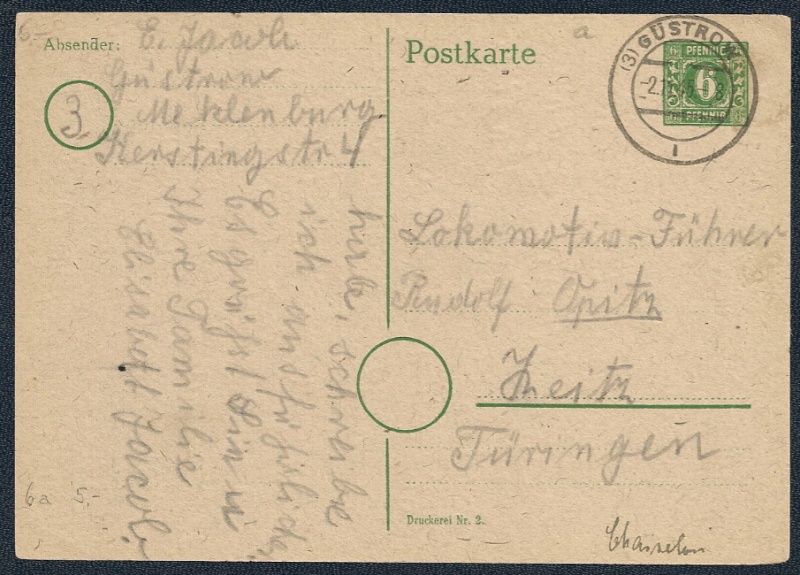 6.-
Absender: E. Jacob
Güstrow
3 Meklenburg.
Kerstingstr 4
habe, schreibe
ich ausführlicher
Es grüßt Sie u
Ihre Familie
Elisabeth Jacob.
6a 5.-
Postkarte
a
(3) GÜSTROW
1
6 PFENNIG
6
PFENNIG
Lokomotiv-Führer
Rudolf Opitz
Zeitz
Türingen
Druckerei Nr. 2.